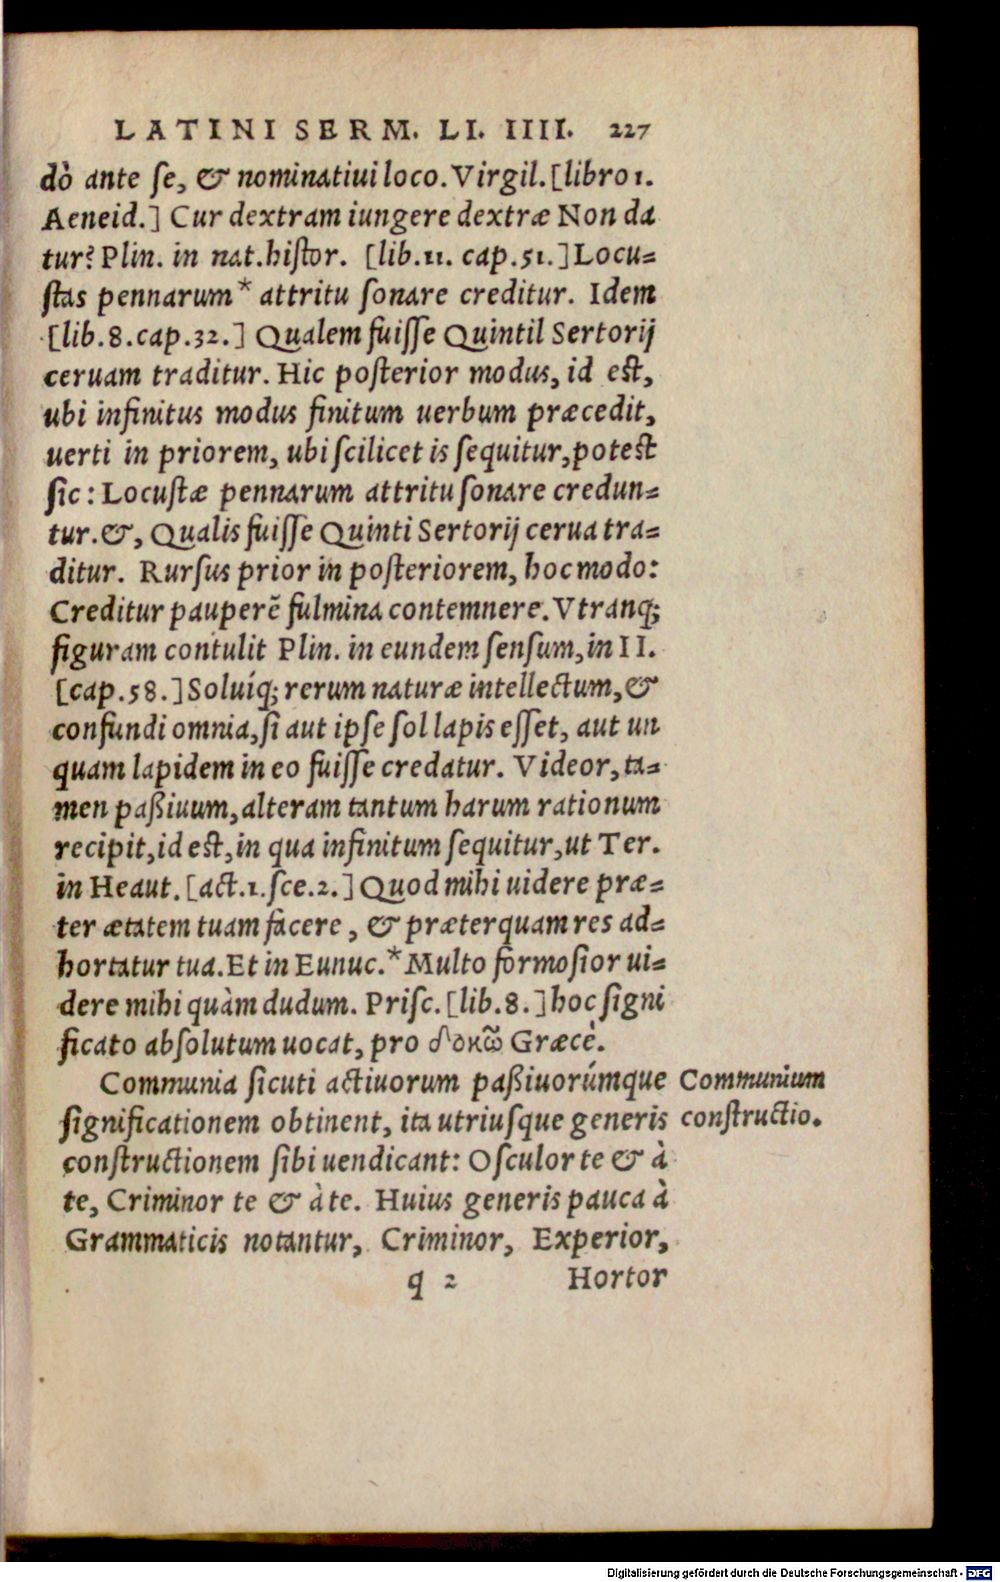 LATINI SERM. LI. IIII. 227
dò ante ſe, & nominatiui loco. Virgil. [libro 1.
Aeneid.] Cur dextram iungere dextræ Non da
tur? Plin. in nat. hiſtor. [lib. 11. cap. 51.] Locu-
ſtas pennarum* attritu ſonare creditur. Idem
[lib. 8. cap. 32.] Qualem fuiſſe Quintil Sertorij
ceruam traditur. Hic poſterior modus, id eſt,
ubi infinitus modus finitum uerbum præcedit,
uerti in priorem, ubi ſcilicet is ſequitur, poteſt
ſic: Locuſtæ pennarum attritu ſonare credun-
tur. &, Qualis fuiſſe Quinti Sertorij cerua tra-
ditur. Rurſus prior in poſteriorem, hoc modo:
Creditur pauperẽ fulmina contemnere. Vtranq;
figuram contulit Plin. in eundem ſenſum, in II.
[cap. 58.] Soluíq; rerum naturæ intellectum, &
confundi omnia, ſi aut ipſe ſol lapis eſſet, aut un
quam lapidem in eo fuiſſe credatur. Videor, ta-
men paßiuum, alteram tantum harum rationum
recipit, id eſt, in qua infinitum ſequitur, ut Ter.
in Heaut. [act. 1. ſce. 2.] Quod mihi uidere præ-
ter ætatem tuam facere, & præterquam res ad-
hortatur tua. Et in Eunuc.* Multo formoſior ui-
dere mihi quàm dudum. Priſc. [lib. 8.] hoc ſigni
ficato abſolutum uocat, pro δοκῶ Græcè.
Communia ſicuti actiuorum paßiuorúmque
Communium
ſignificationem obtinent, ita utriuſque generis
conſtructio.
conſtructionem ſibi uendicant: Oſculor te & à
te, Criminor te & à te. Huius generis pauca à
Grammaticis notantur, Criminor, Experior,
q 2 Hortor
Digitalisierung gefördert durch die Deutsche Forschungsgemeinschaft - DFG